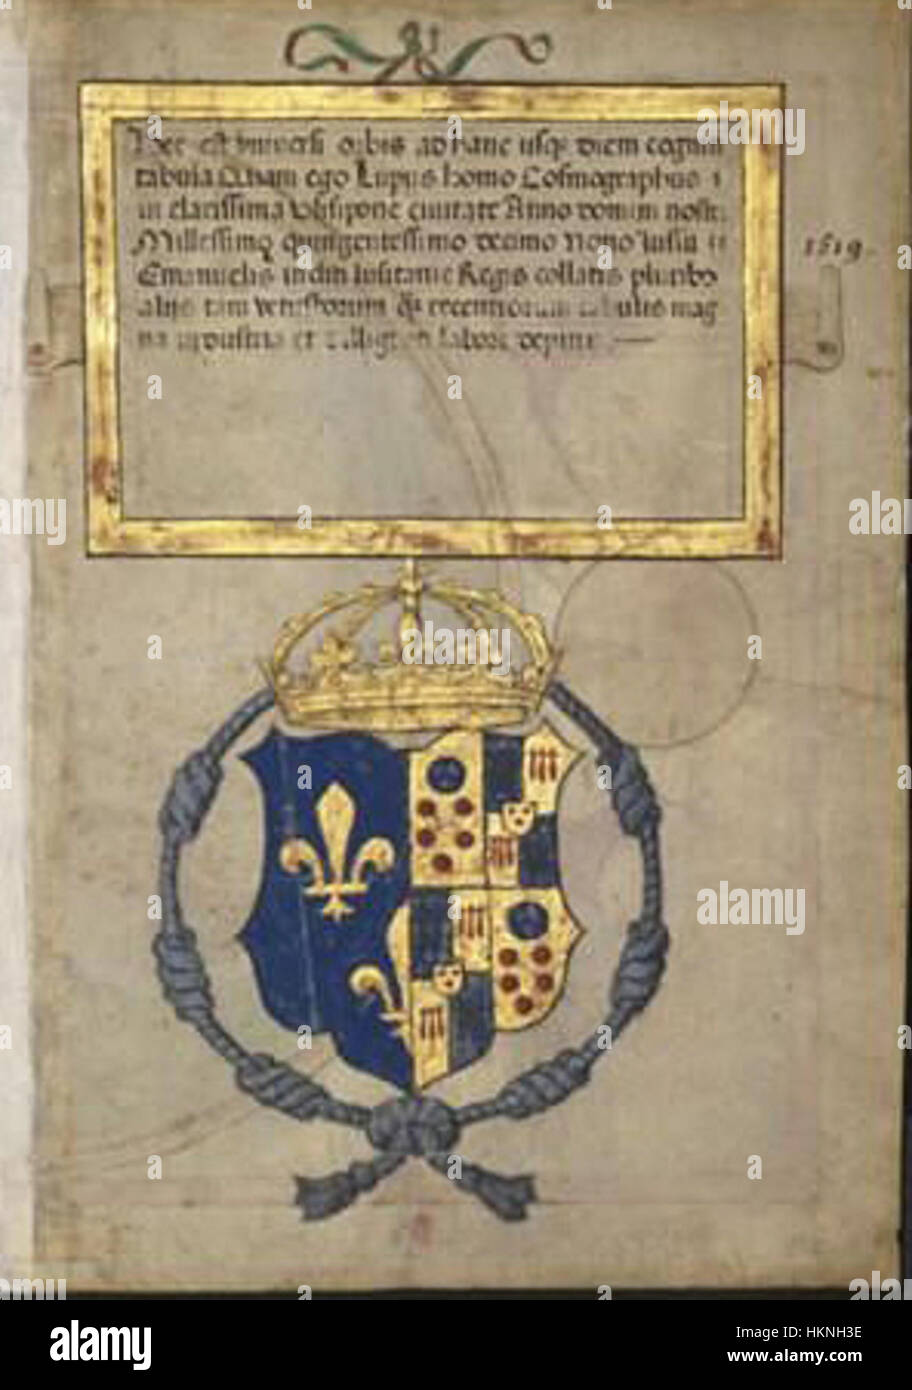 Hec est universi orbis ad hanc usq diem cogniti
tabula Quam ego Lupus homo Cosmographus
in clarissima Ulisipone civitate Anno domini nostri
Millessimo quingentessimo decimo nono iussu
Emanuelis lusitanie Regis collatis pluribo
aliis tam vetustiorum qz recentiorum tabulis mag
na industria et labore depinxi
1519.
alamy
Image ID: HKNH3E
www.alamy.com